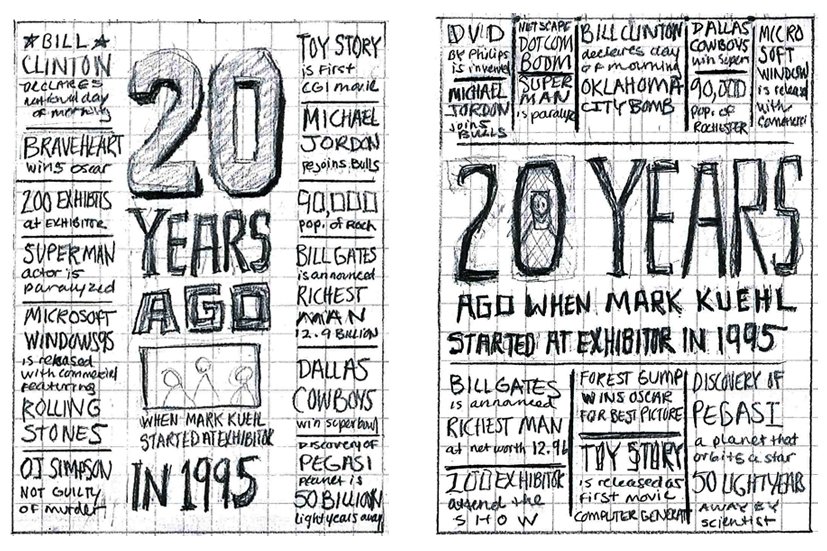 ★ BILL ★
CLINTON
DECLARES
national day
of mourning
BRAVEHEART
wins oscar
200 EXHIBITS
at EXHIBITOR
SUPERMAN
actor is
paralyzed
MICROSOFT
WINDOWS95
is released
with commercial
featuring
ROLLING
STONES
OJ SIMPSON
NOT GUILTY
of murder
20
YEARS
AGO
WHEN MARK KUEHL
STARTED AT EXHIBITOR
IN 1995
TOY STORY
is First
CGI movie
MICHAEL
JORDON
rejoins Bulls
90,000
pop. of Roch
BILL GATES
is announced
RICHEST
MAN
12.9 BILLION
DALLAS
COWBOYS
win superbowl
DISCOVERY of
PEGASI
planet is
50 BILLION
lightyears away
DVD
BY Philips
is invented
MICHAEL
JORDON
joins
BULLS
NETSCAPE
DOTCOM
BOOM
SUPER
MAN
is paralyze
BILL CLINTON
declares day
of mourning
OKLAHOMA
CITY BOMB
DALLAS
COWBOYS
win Super
90,000
pop. of
ROCHESTER
MICRO
SOFT
WINDOW
is released
with
commerci
20 YEARS
AGO WHEN MARK KUEHL
STARTED AT EXHIBITOR IN 1995
BILL GATES
is announced
RICHEST MAN
at net worth 12.9b
200 EXHIBITOR
attend the
SHOW
FOREST GUMP
WINS OSCAR
FOR BEST PICTURE
TOY STORY
is released as
first movie
COMPUTER GENERAT
DISCOVERY OF
PEGASI
a planet that
orbits a star
50 LIGHTYEARS
AWAY BY
scientist